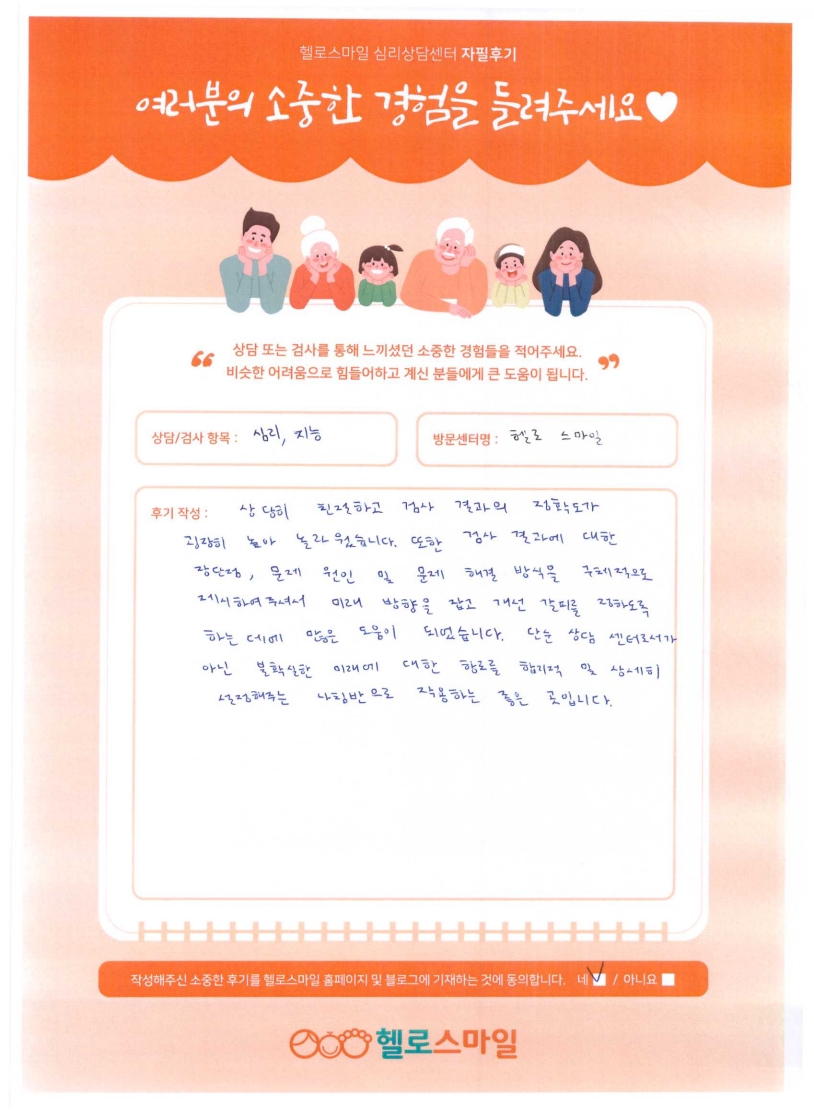 헬로스마일 심리상담센터 자필후기
여러분의 소중한 경험을 들려주세요♥
“ 상담 또는 검사를 통해 느끼셨던 소중한 경험들을 적어주세요. ”
비슷한 어려움으로 힘들어하고 계신 분들에게 큰 도움이 됩니다.
상담/검사 항목 : 심리, 지능
방문센터명 : 헬로 스마일
후기 작성 : 상당히 친절하고 검사 결과의 정확도가
굉장히 높아 놀라웠습니다. 또한 검사 결과에 대한
장단점, 문제 원인 및 문제 해결 방식을 구체적으로
제시하여주셔서 미래 방향을 잡고 개선 갈피를 정하도록
하는 데에 많은 도움이 되었습니다. 단순 상담 센터로서가
아닌 불확실한 미래에 대한 항로를 합리적 및 상세히
설정해주는 나침반으로 작용하는 좋은 곳입니다.
작성해주신 소중한 후기를 헬로스마일 홈페이지 및 블로그에 기재하는 것에 동의합니다. 네 / 아니요
헬로스마일